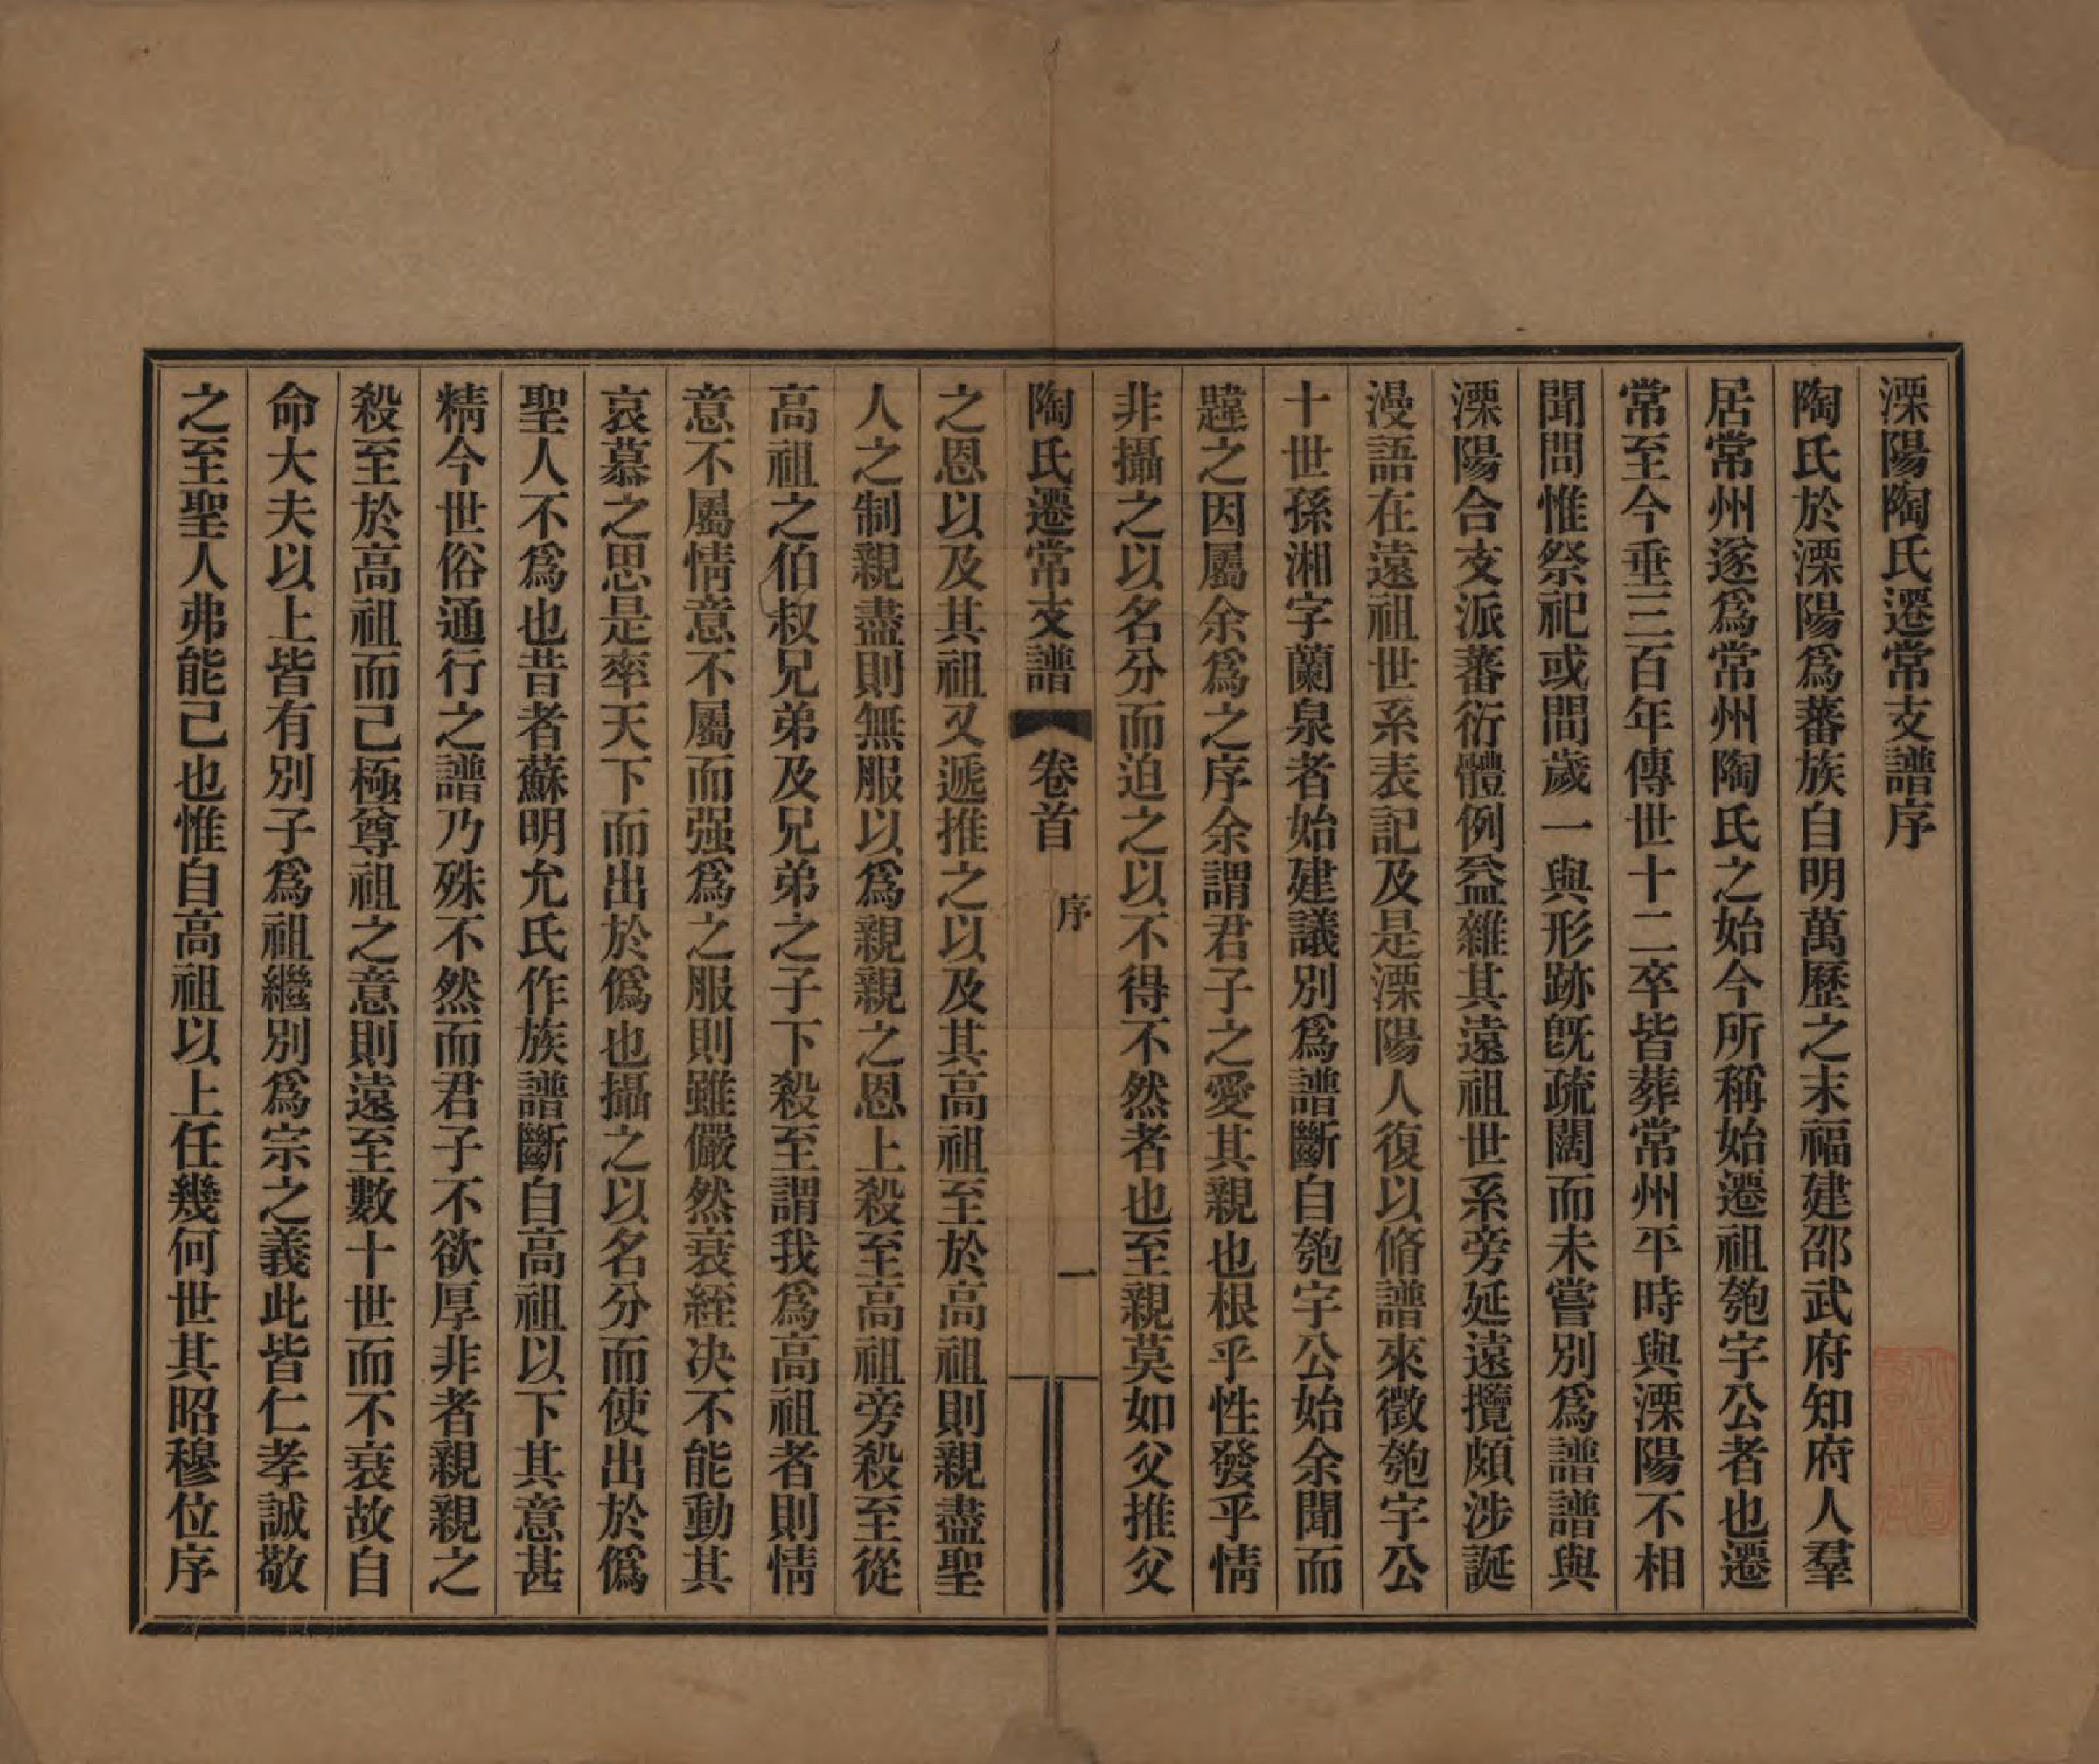 溧陽陶氏遷常支譜序
陶氏於溧陽爲蕃族自明萬歷之末福建邵武府知府人羣
居常州遂爲常州陶氏之始今所稱始遷祖匏宇公者也遷
常至今垂三百年傳世十二卒皆葬常州平時與溧陽不相
聞問惟祭祀或間歲一與形跡旣疏闊而未嘗別爲譜譜與
溧陽合支派蕃衍體例益雜其遠祖世系旁延遠攬頗涉誕
漫語在遠祖世系表記及是溧陽人復以脩譜來徵匏宇公
十世孫湘字蘭泉者始建議別爲譜斷自匏宇公始余聞而
韙之因屬余爲之序余謂君子之愛其親也根乎性發乎情
非攝之以名分而迫之以不得不然者也至親莫如父推父
陶氏遷常支譜 卷首 序 一
之恩以及其祖又遞推之以及其高祖至於高祖則親盡聖
人之制親盡則無服以爲親親之恩上殺至高祖旁殺至從
高祖之伯叔兄弟及兄弟之子下殺至謂我爲高祖者則情
意不屬情意不屬而强爲之服則雖儼然衰絰决不能動其
哀慕之思是率天下而出於僞也攝之以名分而使出於僞
聖人不爲也昔者蘇明允氏作族譜斷自高祖以下其意甚
精今世俗通行之譜乃殊不然而君子不欲厚非者親親之
殺至於高祖而己極尊祖之意則遠至數十世而不衰故自
命大夫以上皆有別子爲祖繼別爲宗之義此皆仁孝誠敬
之至聖人弗能己也惟自高祖以上任幾何世其昭穆位序